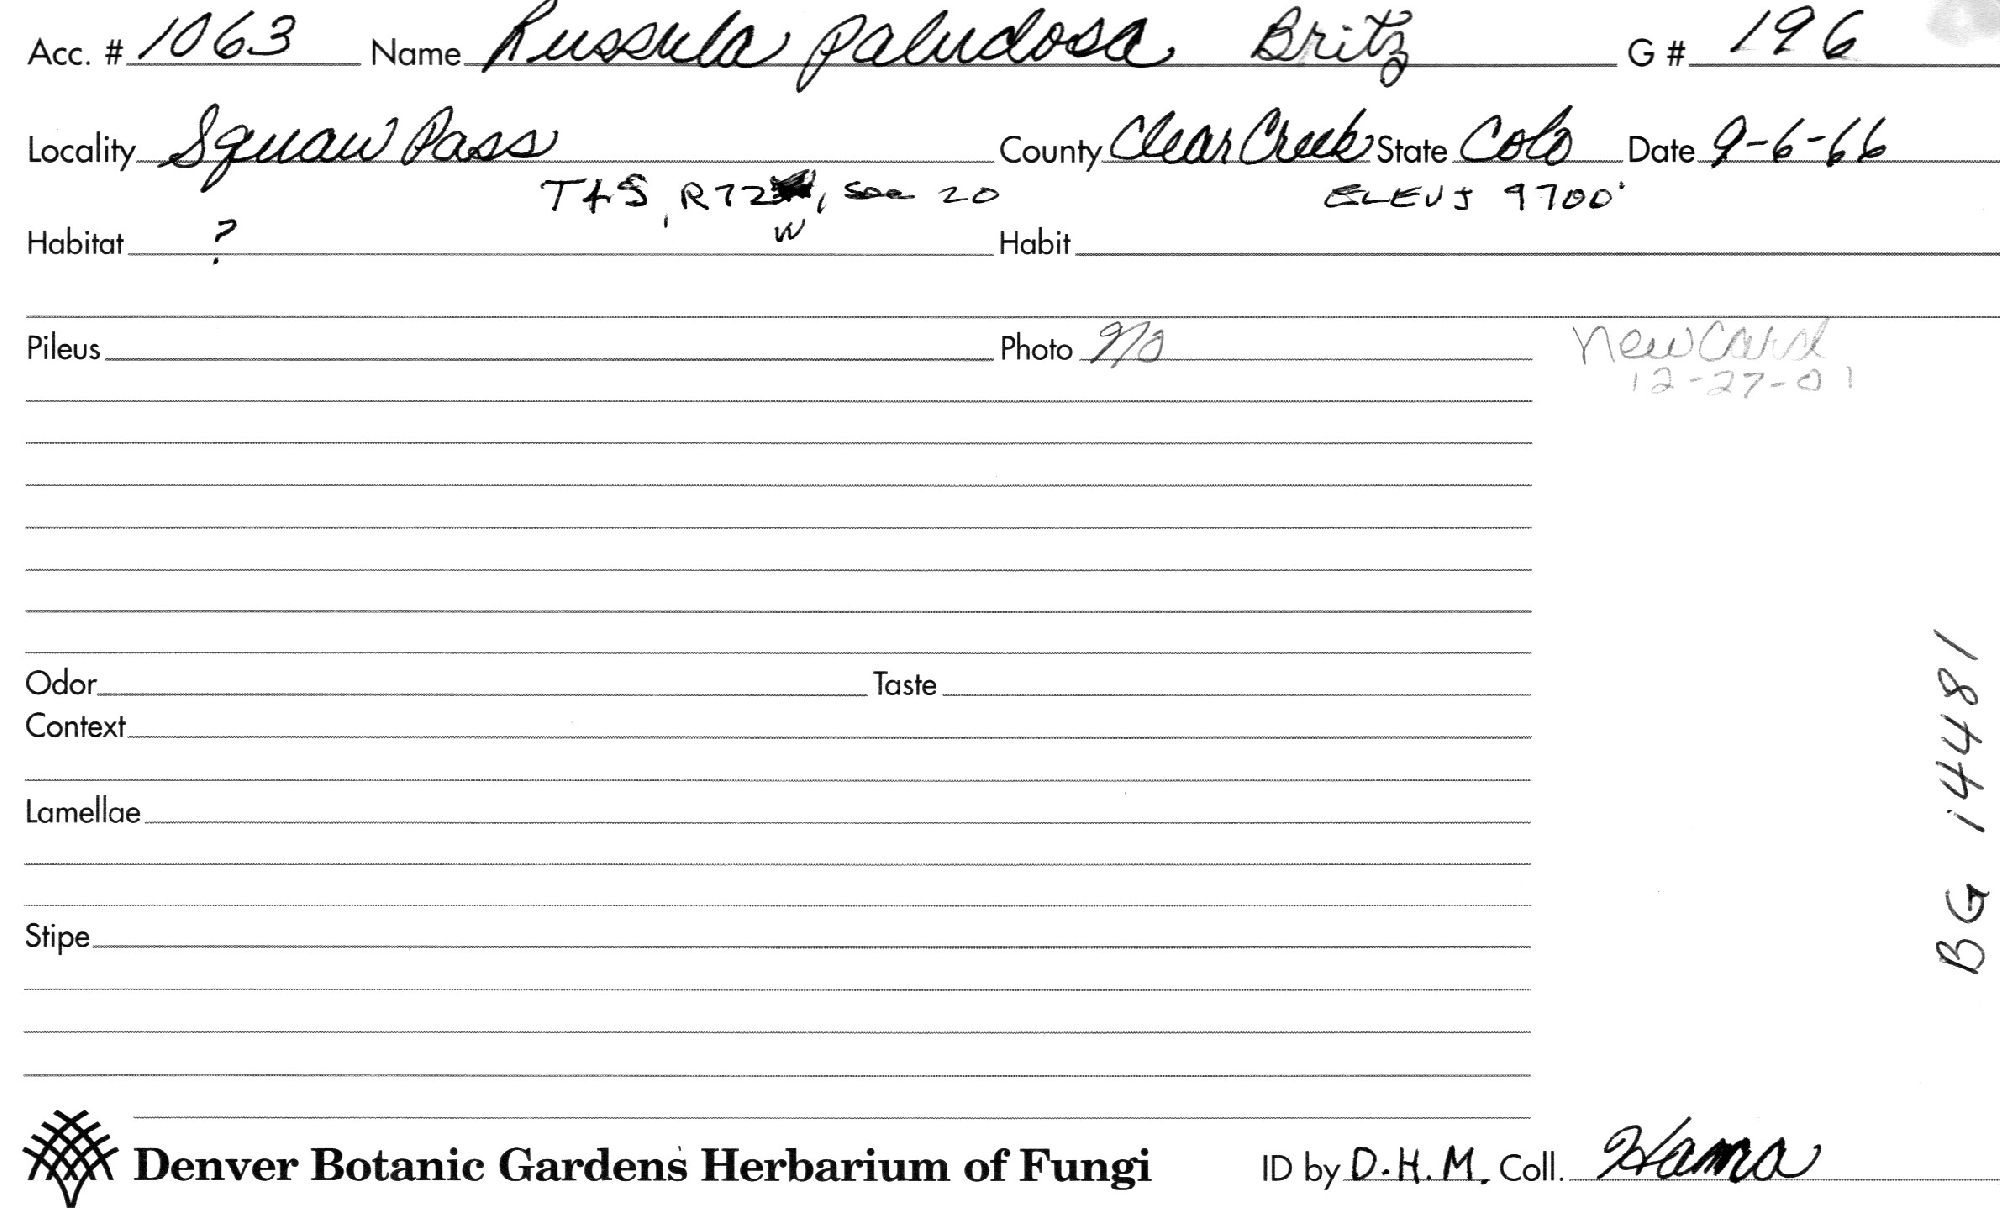 Acc. # 1063 Name Russula paludosa Britz G # 196
Locality Squaw Pass County Clear Creek State Colo Date 9-6-66
T4S, R72 W, Sec 20 ELEV 9700'
Habitat ? Habit
Pileus Photo No
New Card
12-27-01
Odor Taste
Context
Lamellae
Stipe
BG 14481
Denver Botanic Gardens Herbarium of Fungi ID by D.H.M. Coll. Hama